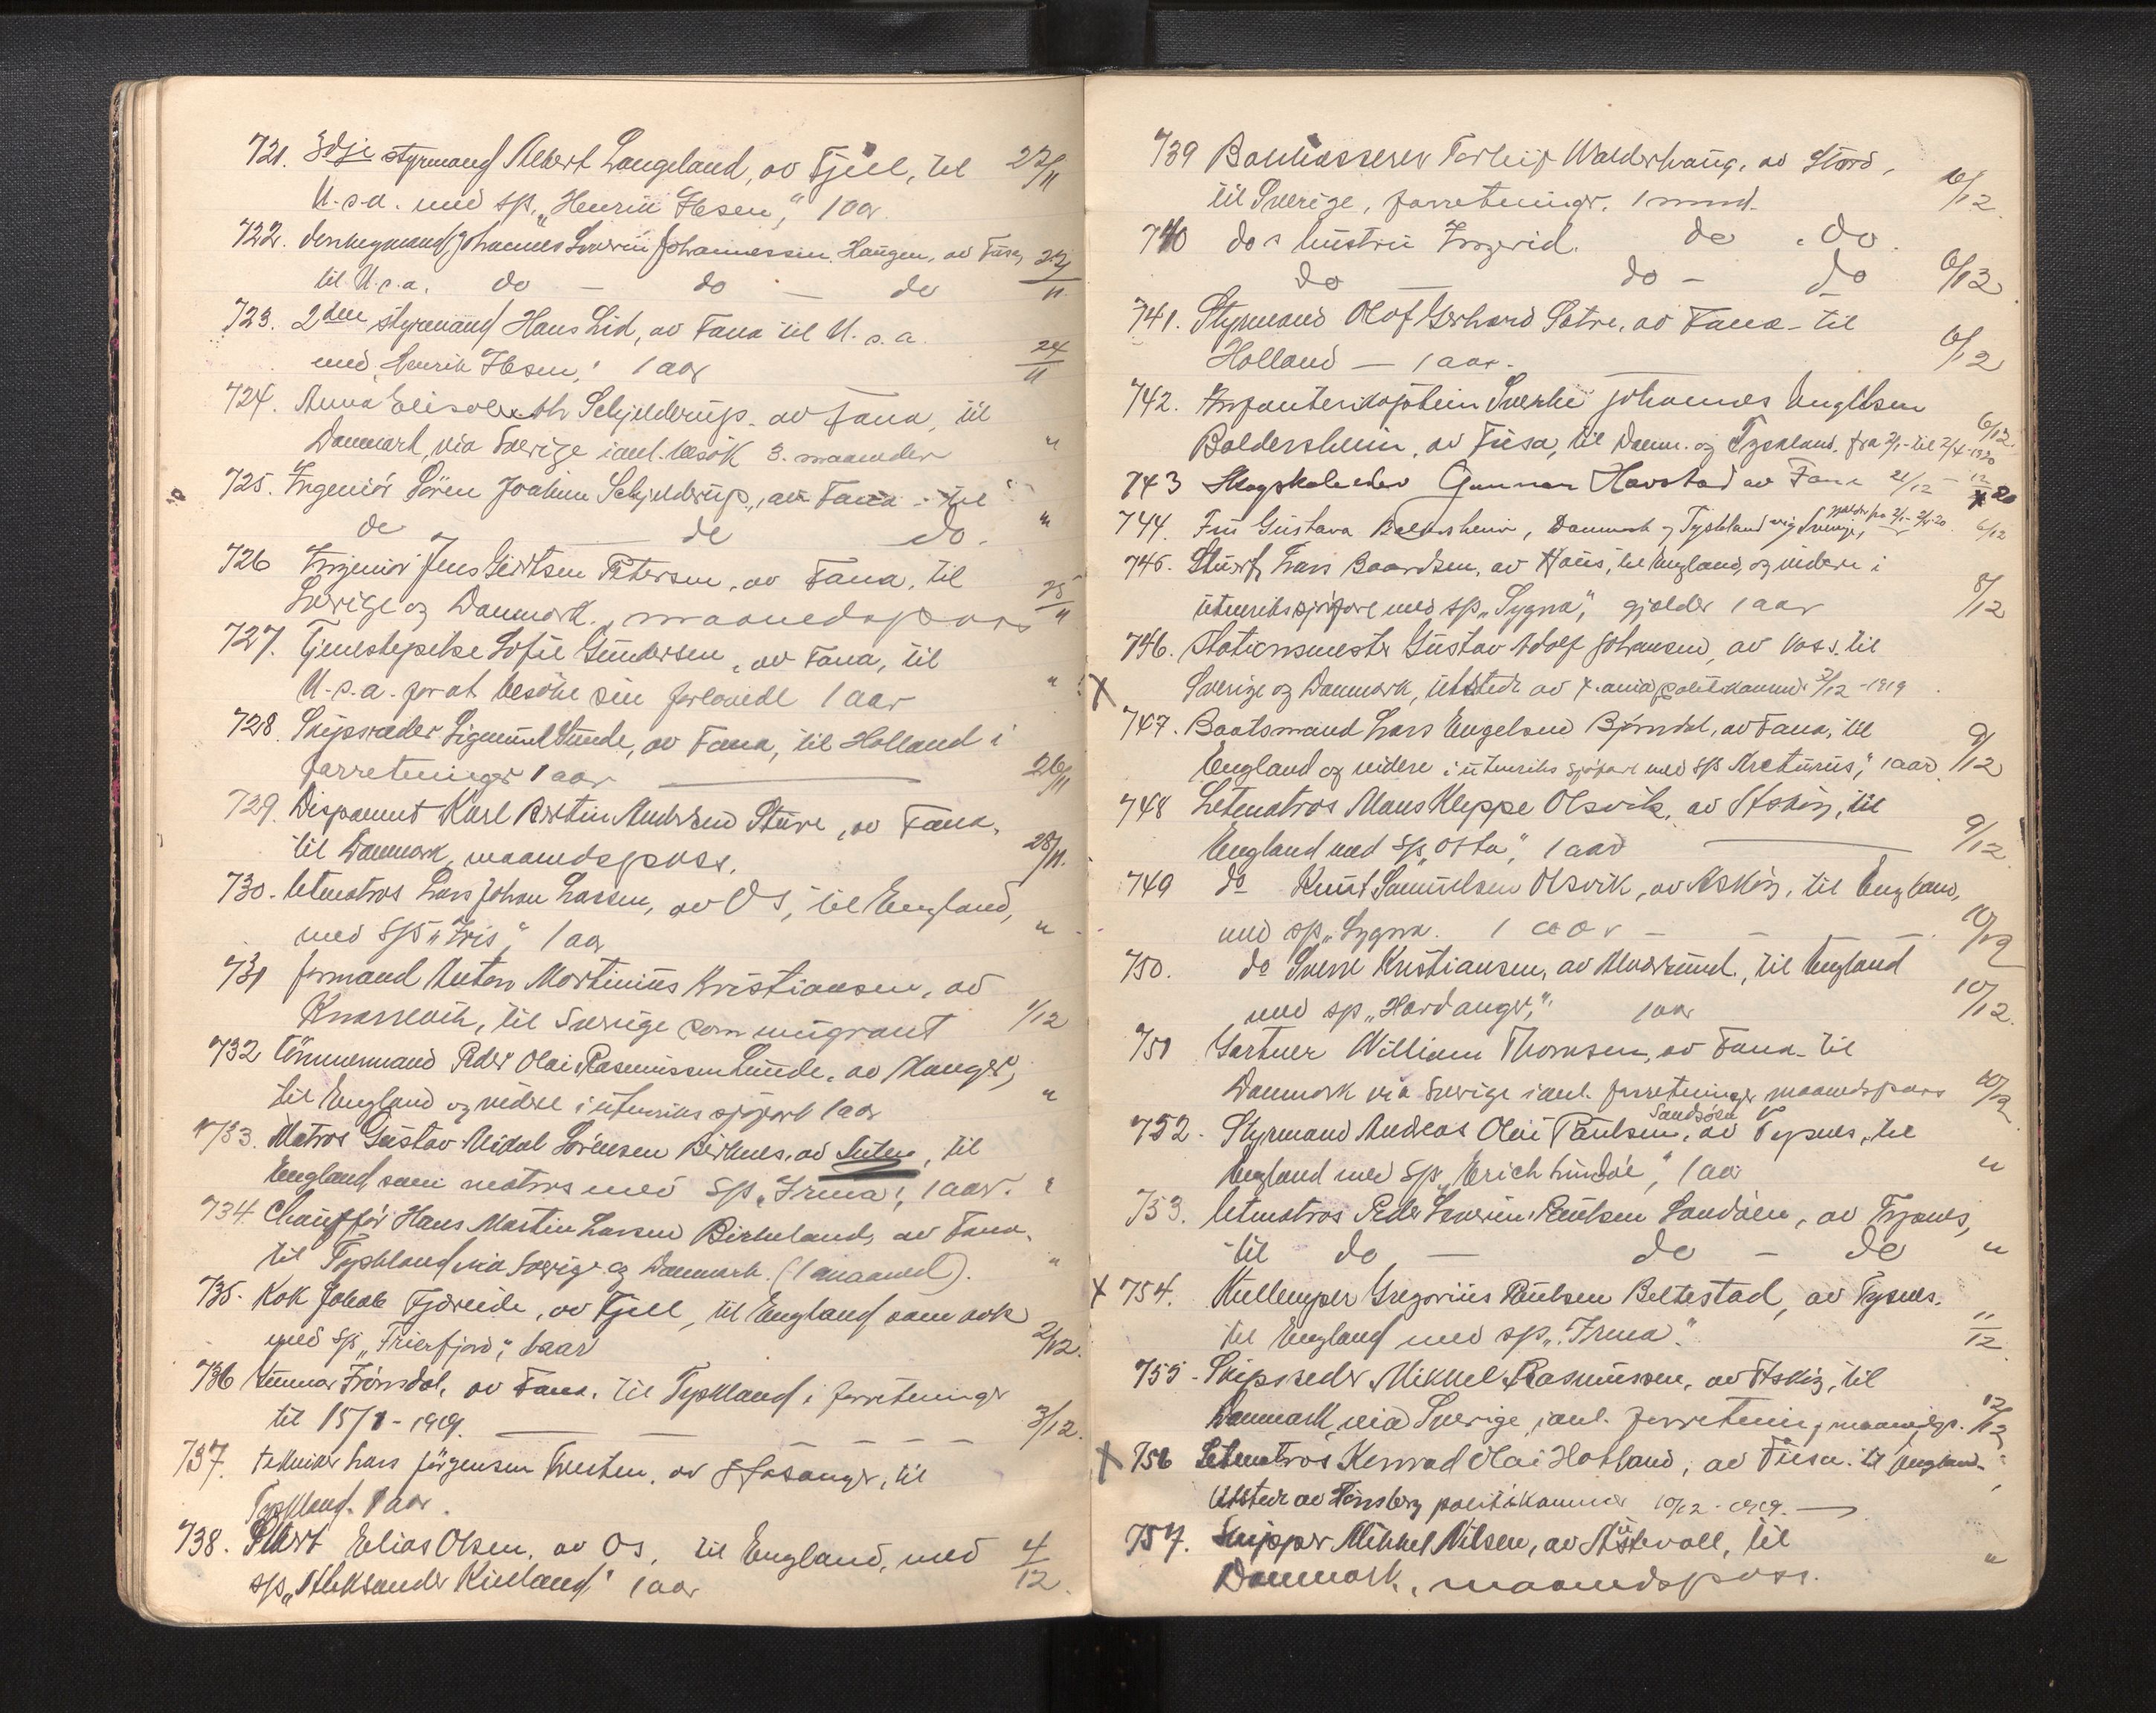 721. 3dje styrmand Albert Langeland, av Fjell, til 22/11
U.s.a. med sp. „Henrik Ibsen", 1 aar.
722. Johannes Severin Johannessen Haugen, av Fusa, 22/11
til U.s.a. do — do — do
723. 2den styrmand Hans Lid, av Fana til U.s.a.
med „Henrik Ibsen", 1 aar 24/11
724. Anna Elisabeth Schjelderup. av Fana, til
Danmark, via Sverige i anl. besøk 3. maaneder "
725. Ingeniør Sören Joakim Schjelderup, av Fana – til
do — do do. "
726 Ingeniør Jens Giertsen Petersen, av Fana, til
Sverige og Danmark, maanedspass 25/11 "
727. Tjenestepike Sofie Gundersen, av Fana, til
U.s.a. for at besöke sin forlovede 1 aar "
728. Skipsreder Sigmund Lunde, av Fana, til Holland i
forretninger 1 aar — 26/11
729. Disponent Karl Martin Andersen Sture, av Fana,
til Danmark, maanedspass. 28/11.
730. letmatros Lars Johan Larsen, av Os, til England,
med Sps „Iris", 1 aar "
731 formand Anton Martinius Kristiansen, av
Knarrevik, til Sverige som emigrant 1/12
732 Tömmermand Peder Olai Rasmussen Lunde, av Manger,
til England og videre i utenriks sjöfart 1 aar "
733. Matros Gustav Nidal Sörensen Birknes, av Austen, til
England som matros med Sp. „Irma", 1 aar. "
734. Chauffør Hans Martin Larsen Birkeland, av Fana,
til Tyskland via Sverige og Danmark. (1 maaned). "
735. Kok Jakob Fjæreide, av Fjell, til England som kok
med sp „Frierfjord", 1 aar 2/12.
736 Gunnar Frömsdal, av Fana. til Tyskland i forretninger
til 15/1 – 1919. — — — — — 3/12.
737. tekniker Lars Jörgensen Tvesten, av Hosanger, til
Tyskland. 1 aar.
738. Stuert Elias Olsen, av Os, til England, med 4/12.
sp. „Aleksander Kielland" 1 aar
739 Bankkasserer Torleif Walderhaug, av Stord,
til Sverige, forretninger. 1 mnd. 6/12.
740 do s hustru Ingerid. do . do.
do — do – do 6/12
741. Styrmand Olof Gerhard Sætre, av Fana – til
Holland — 1 aar. — 6/12
742. Infanterikaptein Sverke Johannes Engelsen 6/12.
Baldersheim, av Fusa, til Danm. og Tyskland. fra 2/1 – til 2/4 – 1920
743 Skogskoleelev Gunnar Havstad av Fana 21/12 – 12/1 20
744. Fru Gustava Baldersheim, Danmark og Tyskland og Sverige, gjelder fra 2/1 – 2/4 – 20 6/12
745. Stuert Lars Baardsen, av Haus, til England, og videre i
utenrikssjöfart med sp. „Sygna", gjælder 1 aar 8/12
746. Stationsmester Gustav Adolf Johansen, av Voss, til
X Sverige og Danmark, utstedt av politikammer 3/12 – 1919.
747. Baatsmand Lars Engelsen Björndal, av Fana, til
England og videre i utenriks sjöfart med sp Arcturus", 1 aar. 9/12
748 Letmatros Mons Kleppe Olsvik, av Askøy, til
England med sp. „Osta", 1 aar — 9/12.
749 do Knut Samuelsen Olsvik, av Askøy, til England,
med sp. „Sygna. 1 aar – – – –. 10/12
750. do Sverre Kristiansen, av Alversund, til England
med sp „Hardanger", 1 aar 10/12.
751 Gartner William Thomsen, av Fana – til
Danmark via Sverige i anl. forretninger maanedspass 10/12
752. Styrmand Andreas Olai Paulsen Sandsöen, av Tysnes, til
England med sp „Erich Lindöe", 1 aar "
753. letmatros Peder Severin Paulsen Sandöen, av Tysnes,
til do — do – do "
X 754. Kullemper Gregorius Paulsen Beltestad, av Tysnes.
til England med sp „Irma". 11/12.
755 – Skipsreder Mikkel Rasmussen, av Askøy, til
Danmark, via Sverige i anl. forretning, maanedsp. 12/12
X 756 Letmatros Konrad Olai Hotland, av Fusa. til England.
Utstedt av Tönsberg politikammer 10/12 – 1919. —
757. Skipper Mikkel Nilsen, av Austevoll, til
Danmark, maanedspass. "